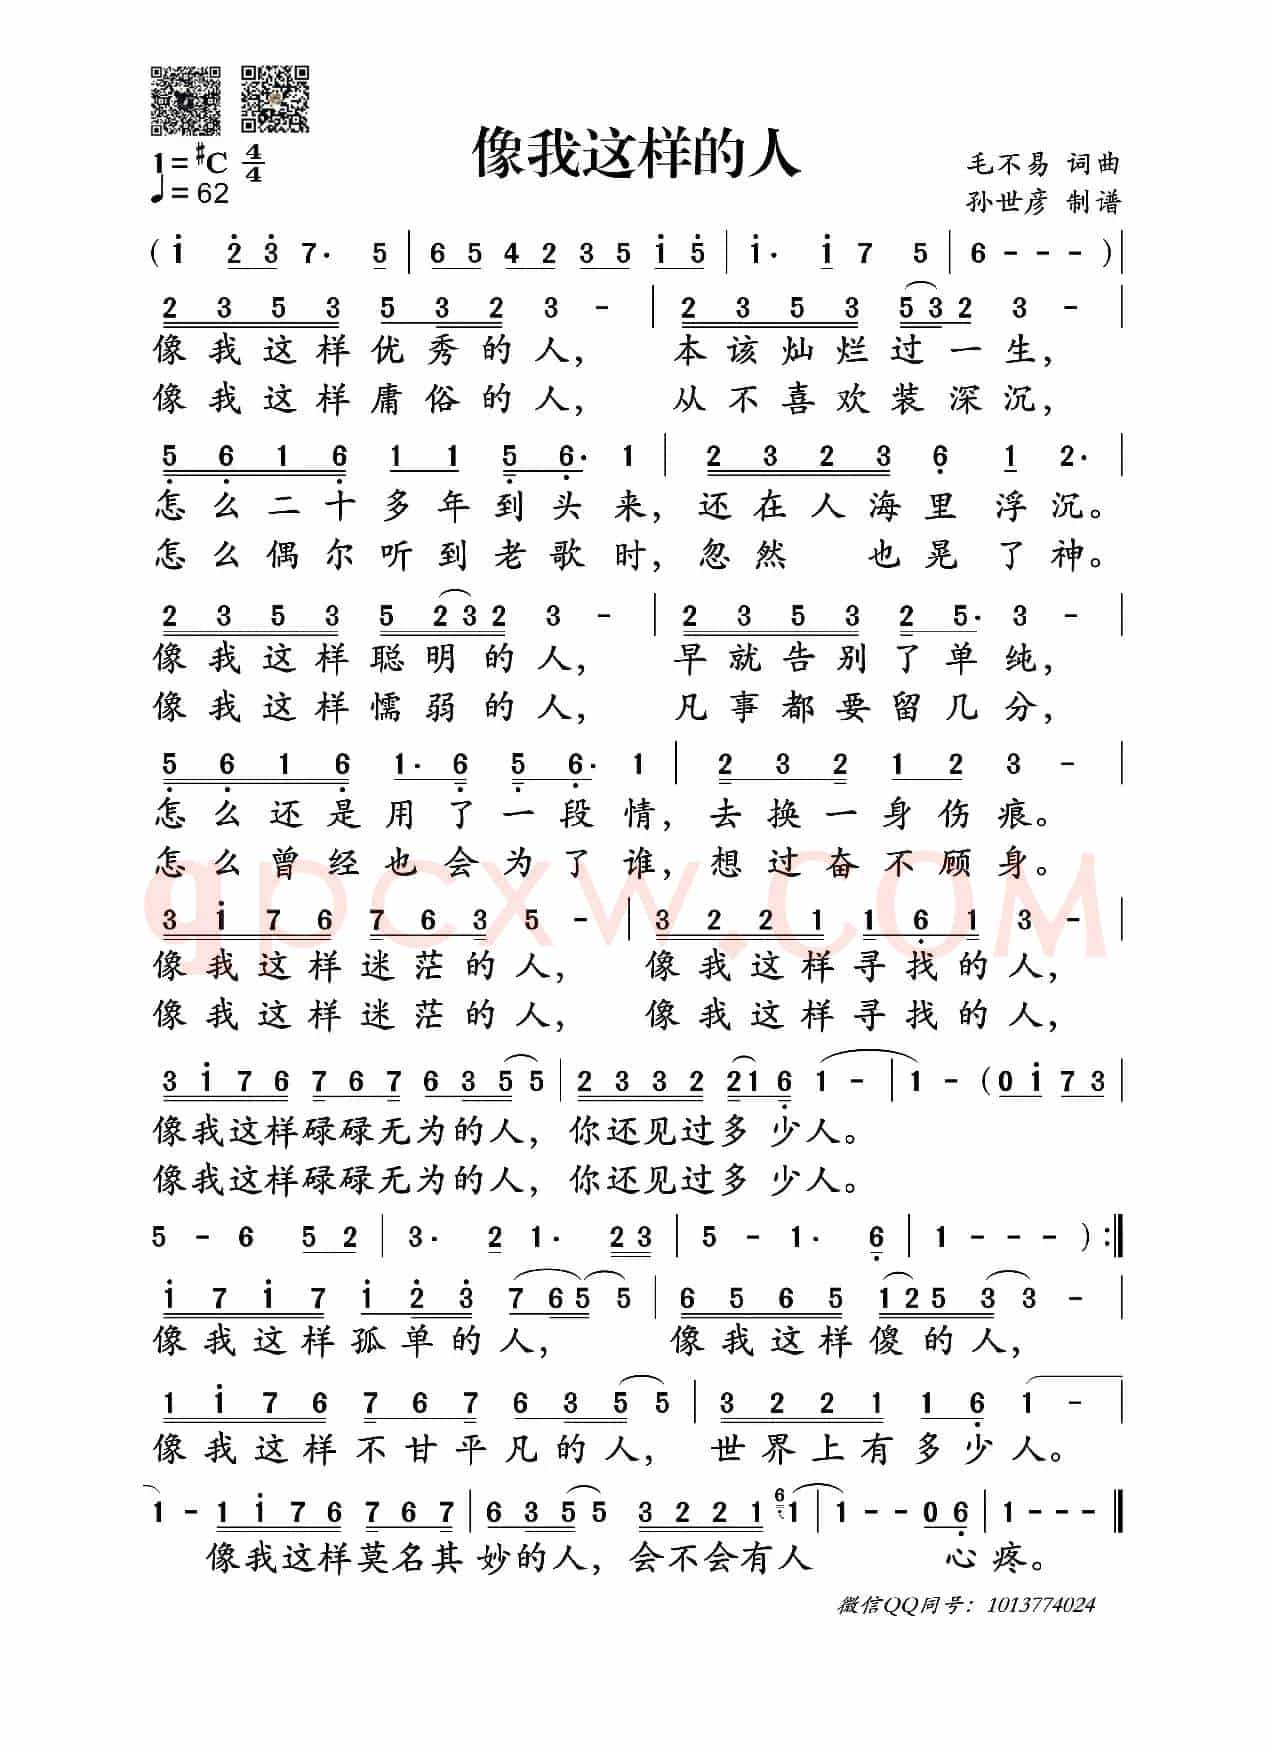 像我这样的人
1=#C 4/4
♩=62
毛不易 词曲
孙世彦 制谱
( 1 2 3 7· 5 | 6 5 4 2 3 5 1 5 | 1· 1 7 5 | 6 - - - ) |
2 3 5 3 5 3 2 3 - | 2 3 5 3 5 3 2 3 - |
像我这样优秀的人, 本该灿烂过一生,
像我这样庸俗的人, 从不喜欢装深沉,
5 6 1 6 1 1 5 6· 1 | 2 3 2 3 6 1 2· |
怎么二十多年到头来, 还在人海里浮沉。
怎么偶尔听到老歌时, 忽然 也晃了神。
2 3 5 3 5 2 3 2 3 - | 2 3 5 3 2 5· 3 - |
像我这样聪明的人, 早就告别了单纯,
像我这样懦弱的人, 凡事都要留几分,
5 6 1 6 1· 6 5 6· 1 | 2 3 2 1 2 3 - |
怎么还是用了一段情, 去换一身伤痕。
怎么曾经也会为了谁, 想过奋不顾身。
3 1 7 6 7 6 3 5 - | 3 2 2 1 1 6 1 3 - |
像我这样迷茫的人, 像我这样寻找的人,
像我这样迷茫的人, 像我这样寻找的人,
3 1 7 6 7 6 7 6 3 5 5 | 2 3 3 2 2 1 6 1 - | 1 - ( 0 1 7 3 |
像我这样碌碌无为的人, 你还见过多少人。
像我这样碌碌无为的人, 你还见过多少人。
5 - 6 5 2 | 3· 2 1· 2 3 | 5 - 1· 6 | 1 - - - ) :|
1 7 1 7 1 2 3 7 6 5 5 | 6 5 6 5 1 2 5 3 3 - |
像我这样孤单的人, 像我这样傻的人,
1 1 7 6 7 6 7 6 3 5 5 | 3 2 2 1 1 6 1 - |
像我这样不甘平凡的人, 世界上有多少人。
1 - 1 1 7 6 7 6 7 | 6 3 5 5 3 2 2 1 6 1 | 1 - - 0 6 | 1 - - - |
像我这样莫名其妙的人, 会不会有人 心疼。
微信QQ同号: 1013774024
qpcxw.COM